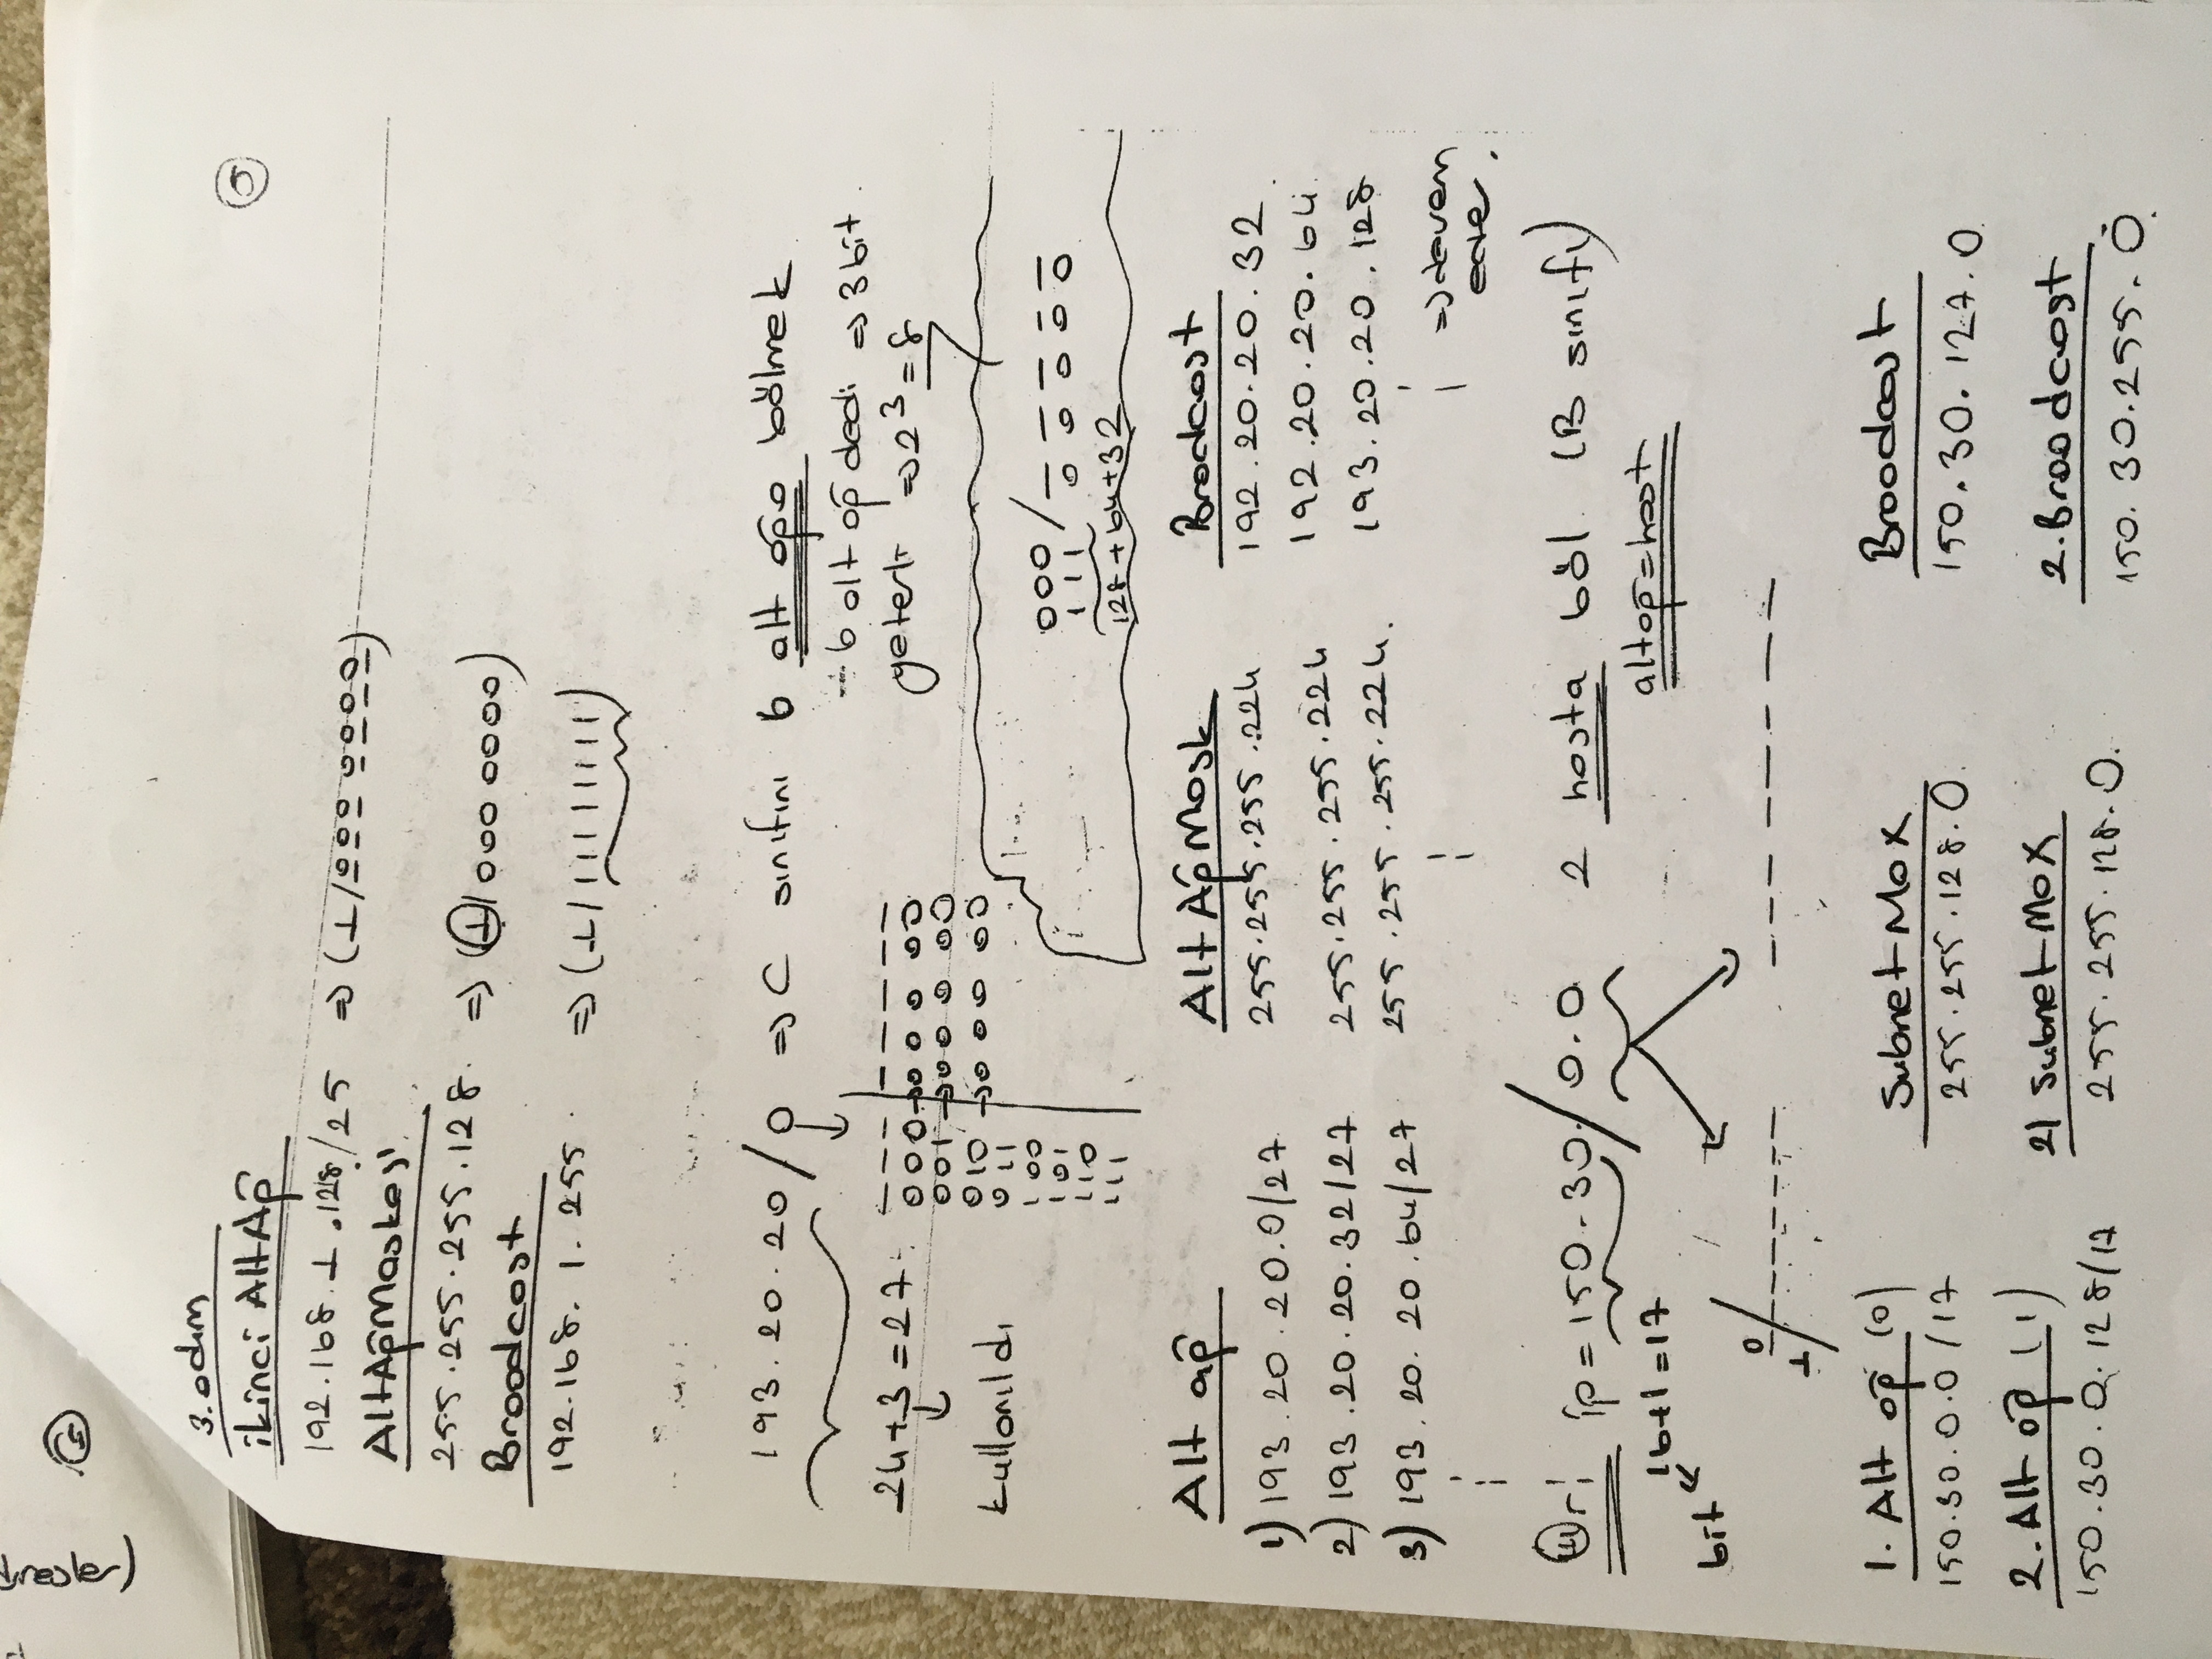 reskler)
4
5
3. adım
ikinci Alt Ağ
192.168.1.128/25 => (1/000 0000)
AltAğMaskesi
255.255.255.128. => (1/000 0000)
Broodcast
192.168.1.255 => (1/11111111)
193.20.20/0 => C sınıfını 6 alt ağa bölmek
- 6 alt ağ dedi => 3 bit
yeterli => 2^3 = 8
24+3=27
kullanıldı
000 -> 0 0 0 0 0
001 -> 0 0 0 0 0
010 -> 0 0 0 0 0
011
100
101
110
111
000 / _ _ _ _ _
111 0 0 0 0 0
128+64+32
Alt ağ Alt Ağ Mask Brodcast
1) 193.20.20.0/27 255.255.255.224 192.20.20.32
2) 193.20.20.32/27 255.255.255.224 192.20.20.64
3) 193.20.20.64/27 255.255.255.224. 193.20.20.128
=> devam
eder.
ip = 150.30./0.0 2 hosta böl (B sınıfı)
16+1=17 altağ=host
bit
0
1
1. Alt ağ (0) Subnet Max Broodcast
150.30.0.0/17 255.255.128.0. 150.30.127.0
2. Alt ağ (1) 2) Subnet Max 2. Broodcast
150.30.0.128/17 255.255.128.0. 150.30.255.0